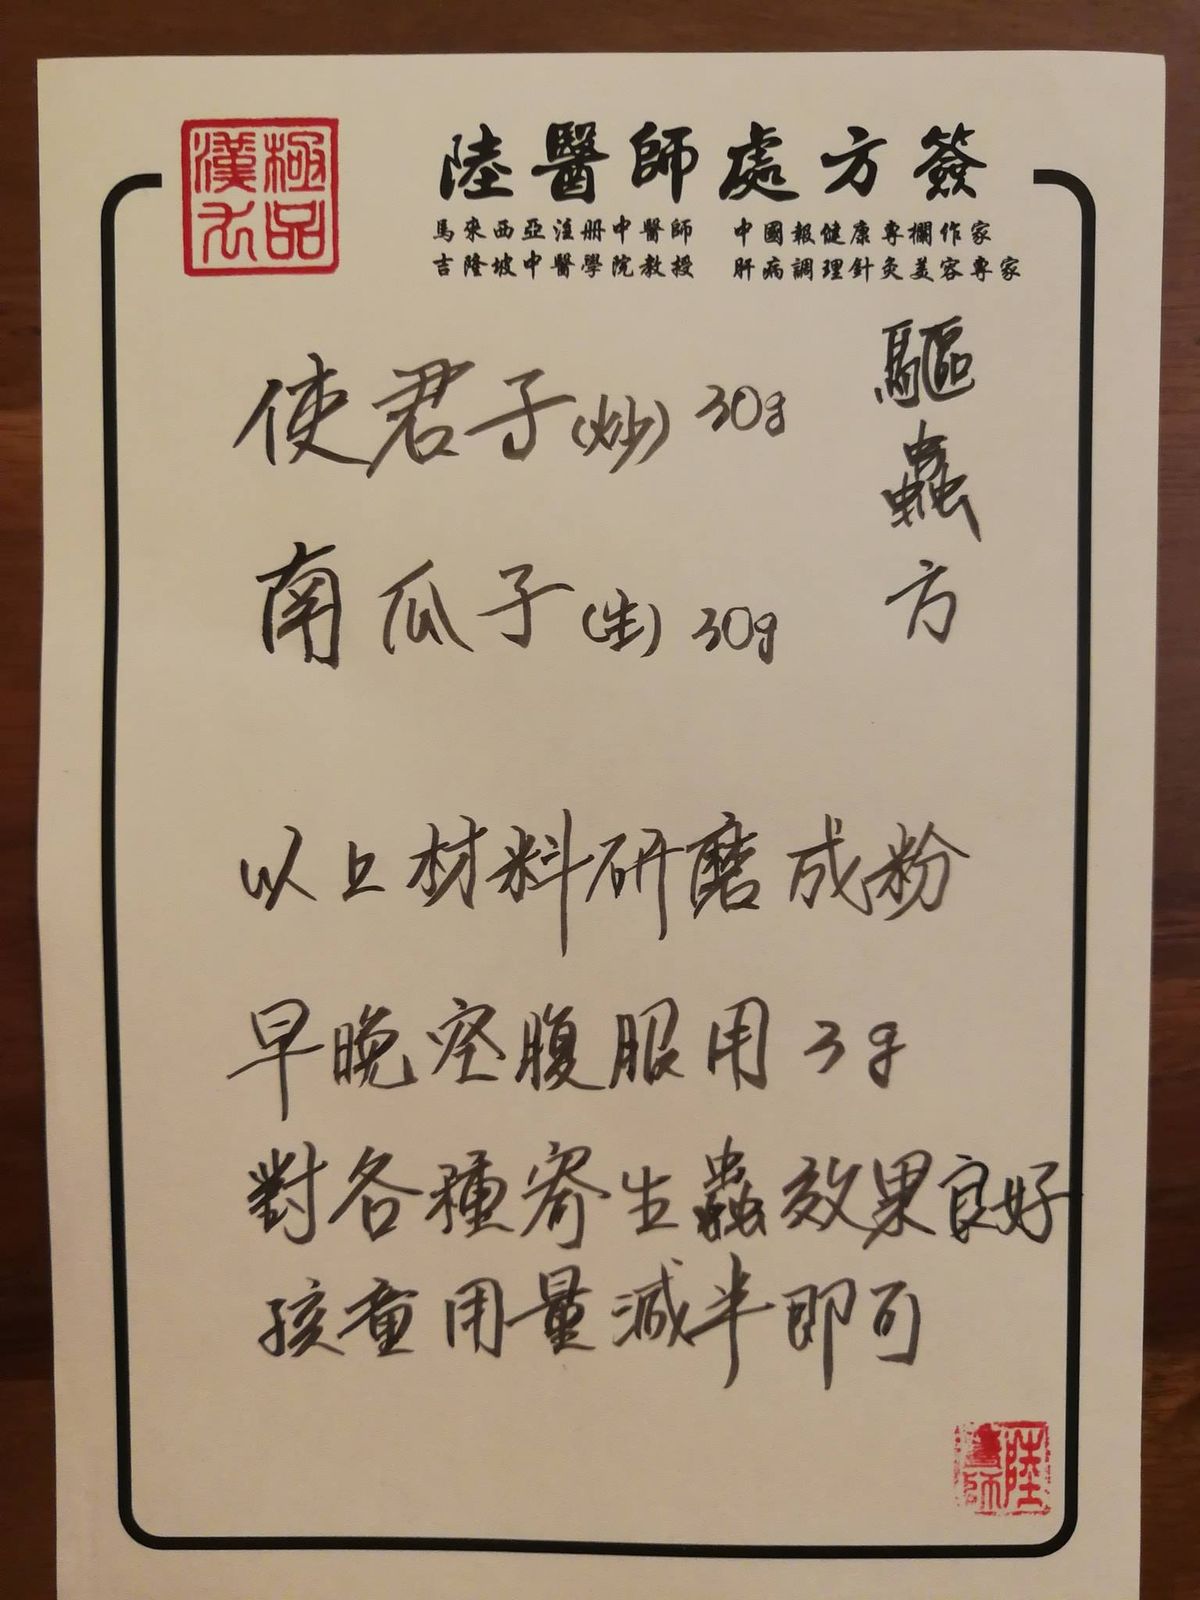 極品
漢方
陸醫師處方簽
馬來西亞注册中醫師 中國報健康專欄作家
吉隆坡中醫學院教授 肝病調理針灸美容專家
驅蟲方
使君子(炒) 30g
南瓜子(生) 30g
以上材料研磨成粉
早晚空腹服用 3g
對各種寄生蟲效果良好
孩童用量減半即可
陸
醫師